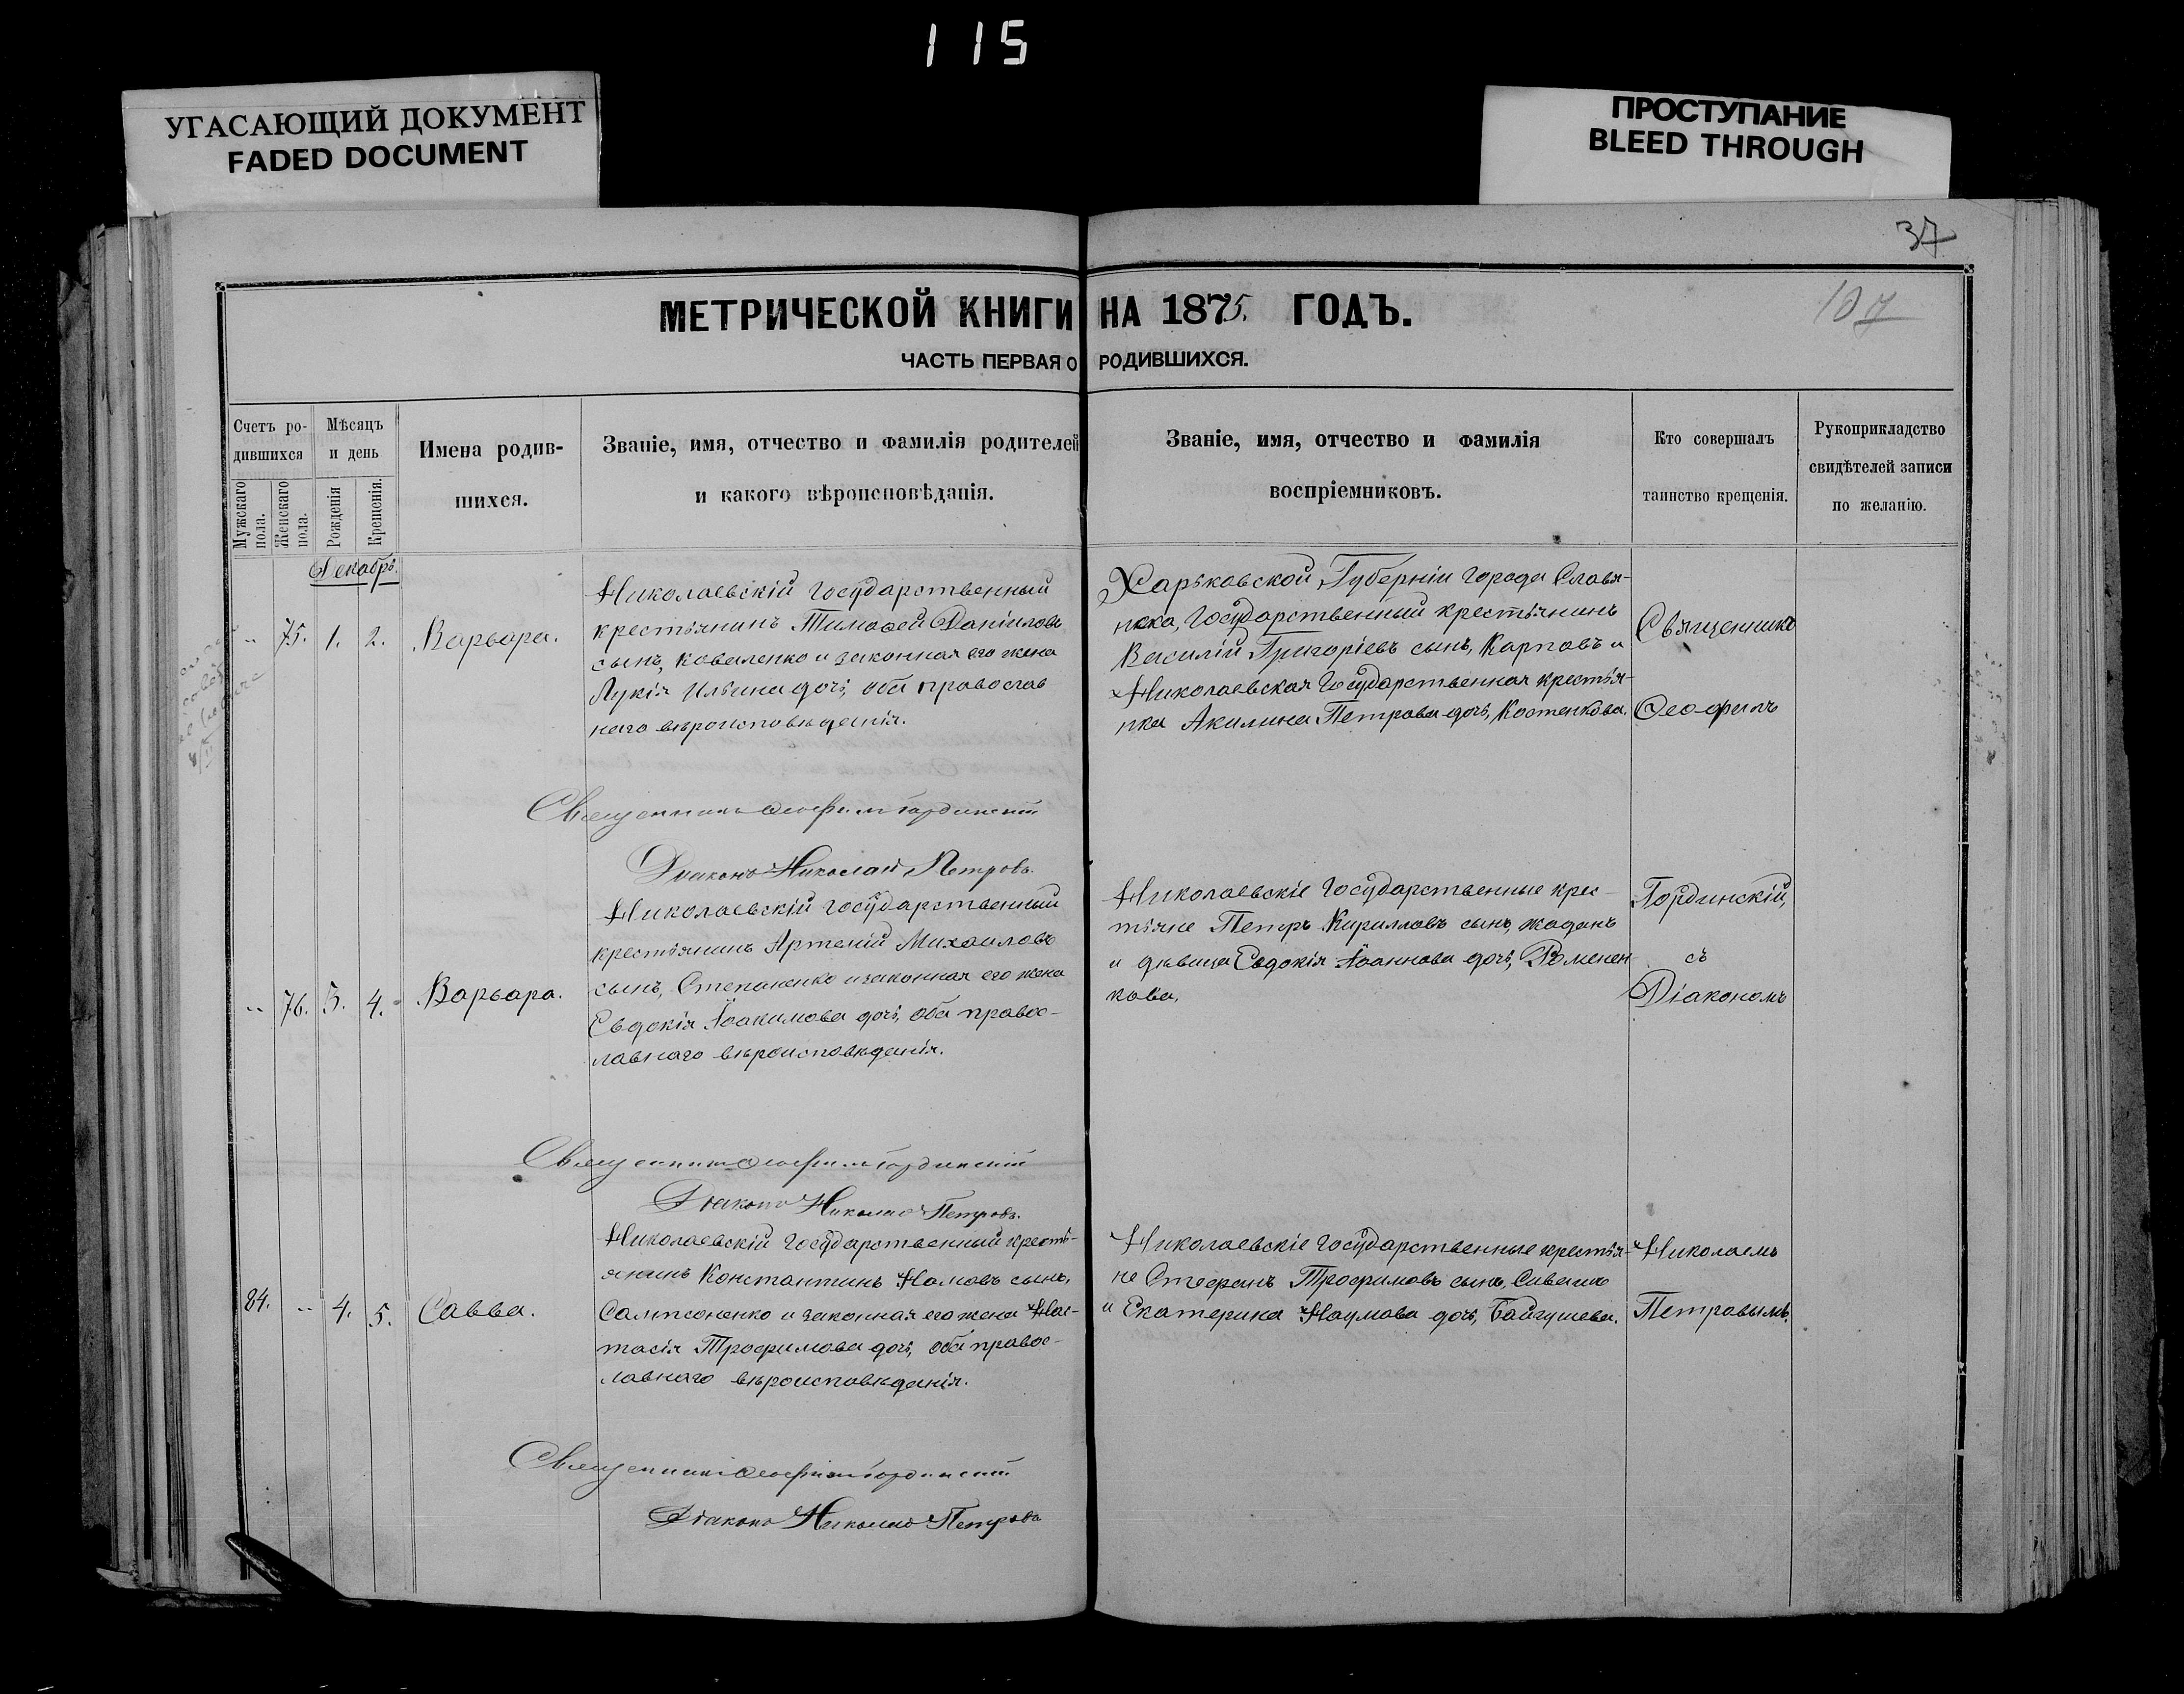 115
УГАСАЮЩИЙ ДОКУМЕНТ
FADED DOCUMENT
ПРОСТУПАНИЕ
BLEED THROUGH
37
107
МЕТРИЧЕСКОЙ КНИГИ НА 1875. ГОДЪ.
ЧАСТЬ ПЕРВАЯ О РОДИВШИХСЯ.
Счетъ ро-
дившихся
Мужскаго пола.
Женскаго пола.
Мѣсяцъ
и день
Рожденія
Крещенія.
Имена родив-
шихся.
Званіе, имя, отчество и фамилія родителей
и какого вѣроисповѣданія.
Званіе, имя, отчество и фамилія
воспріемниковъ.
Кто совершалъ
таинство крещенія.
Рукоприкладство
свидѣтелей записи
по желанію.
Декабрь.
„ 75. 1. 2. Варвара.
Николаевскій Государственный
крестьянинъ Тимофей Даніиловъ
сынъ, Коваленко и законная его жена
Лукія Ильина дочь, оба православ
наго вѣроисповѣданія.
Харьковской Губерніи города Славя-
нска, Государственный крестьянинъ
Василій Григоріевъ сынъ, Карповъ и
Николаевская Государственная крестья-
нка Акилина Петрова дочь, Костенкова.
Священникъ
Ѳеофилъ
Священникъ Ѳеофилъ Гординскій
Діаконъ Николай Петровъ.
„ 76. 3. 4. Варвара.
Николаевскій Государственный
крестьянинъ Артемій Михаиловъ
сынъ, Степаненко и законная его жена
Евдокія Іоакимова дочь, оба правос-
лавнаго вѣроисповѣданія.
Николаевскіе Государственные крес-
тьяне Петръ Кирилловъ сынъ, Жаданъ
и дѣвица Евдокія Іоаннова дочь, Роменен
кова.
Гординскій,
съ
Діакономъ
Священникъ Ѳеофилъ Гординскій
Діаконъ Николай Петровъ.
84. „ 4. 5. Савва.
Николаевскій Государственный кресть-
янинъ Константинъ Наумовъ сынъ,
Сампсоненко и законная его жена Нас-
тасія Трофимова дочь, оба правос-
лавнаго вѣроисповѣданія.
Николаевскіе Государственные крестья-
не Стефанъ Трофимовъ сынъ, Сивашъ
и Екатерина Наумова дочь, Байгушева.
Николаемъ
Петровымъ.
Священникъ Ѳеофилъ Гординскій
Діаконъ Николай Петровъ